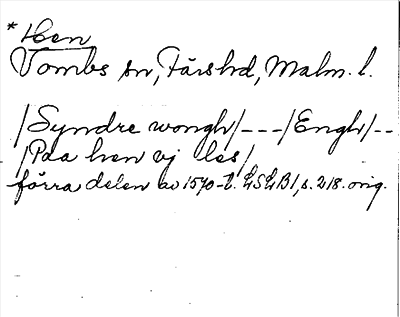 * Hen
Vombs sn, Färshd, Malm. l.
/Syndre wongh/---/Engh/--
/Paa hen vj les/
förra delen av 1570-t. LSLB1, s. 218. orig.